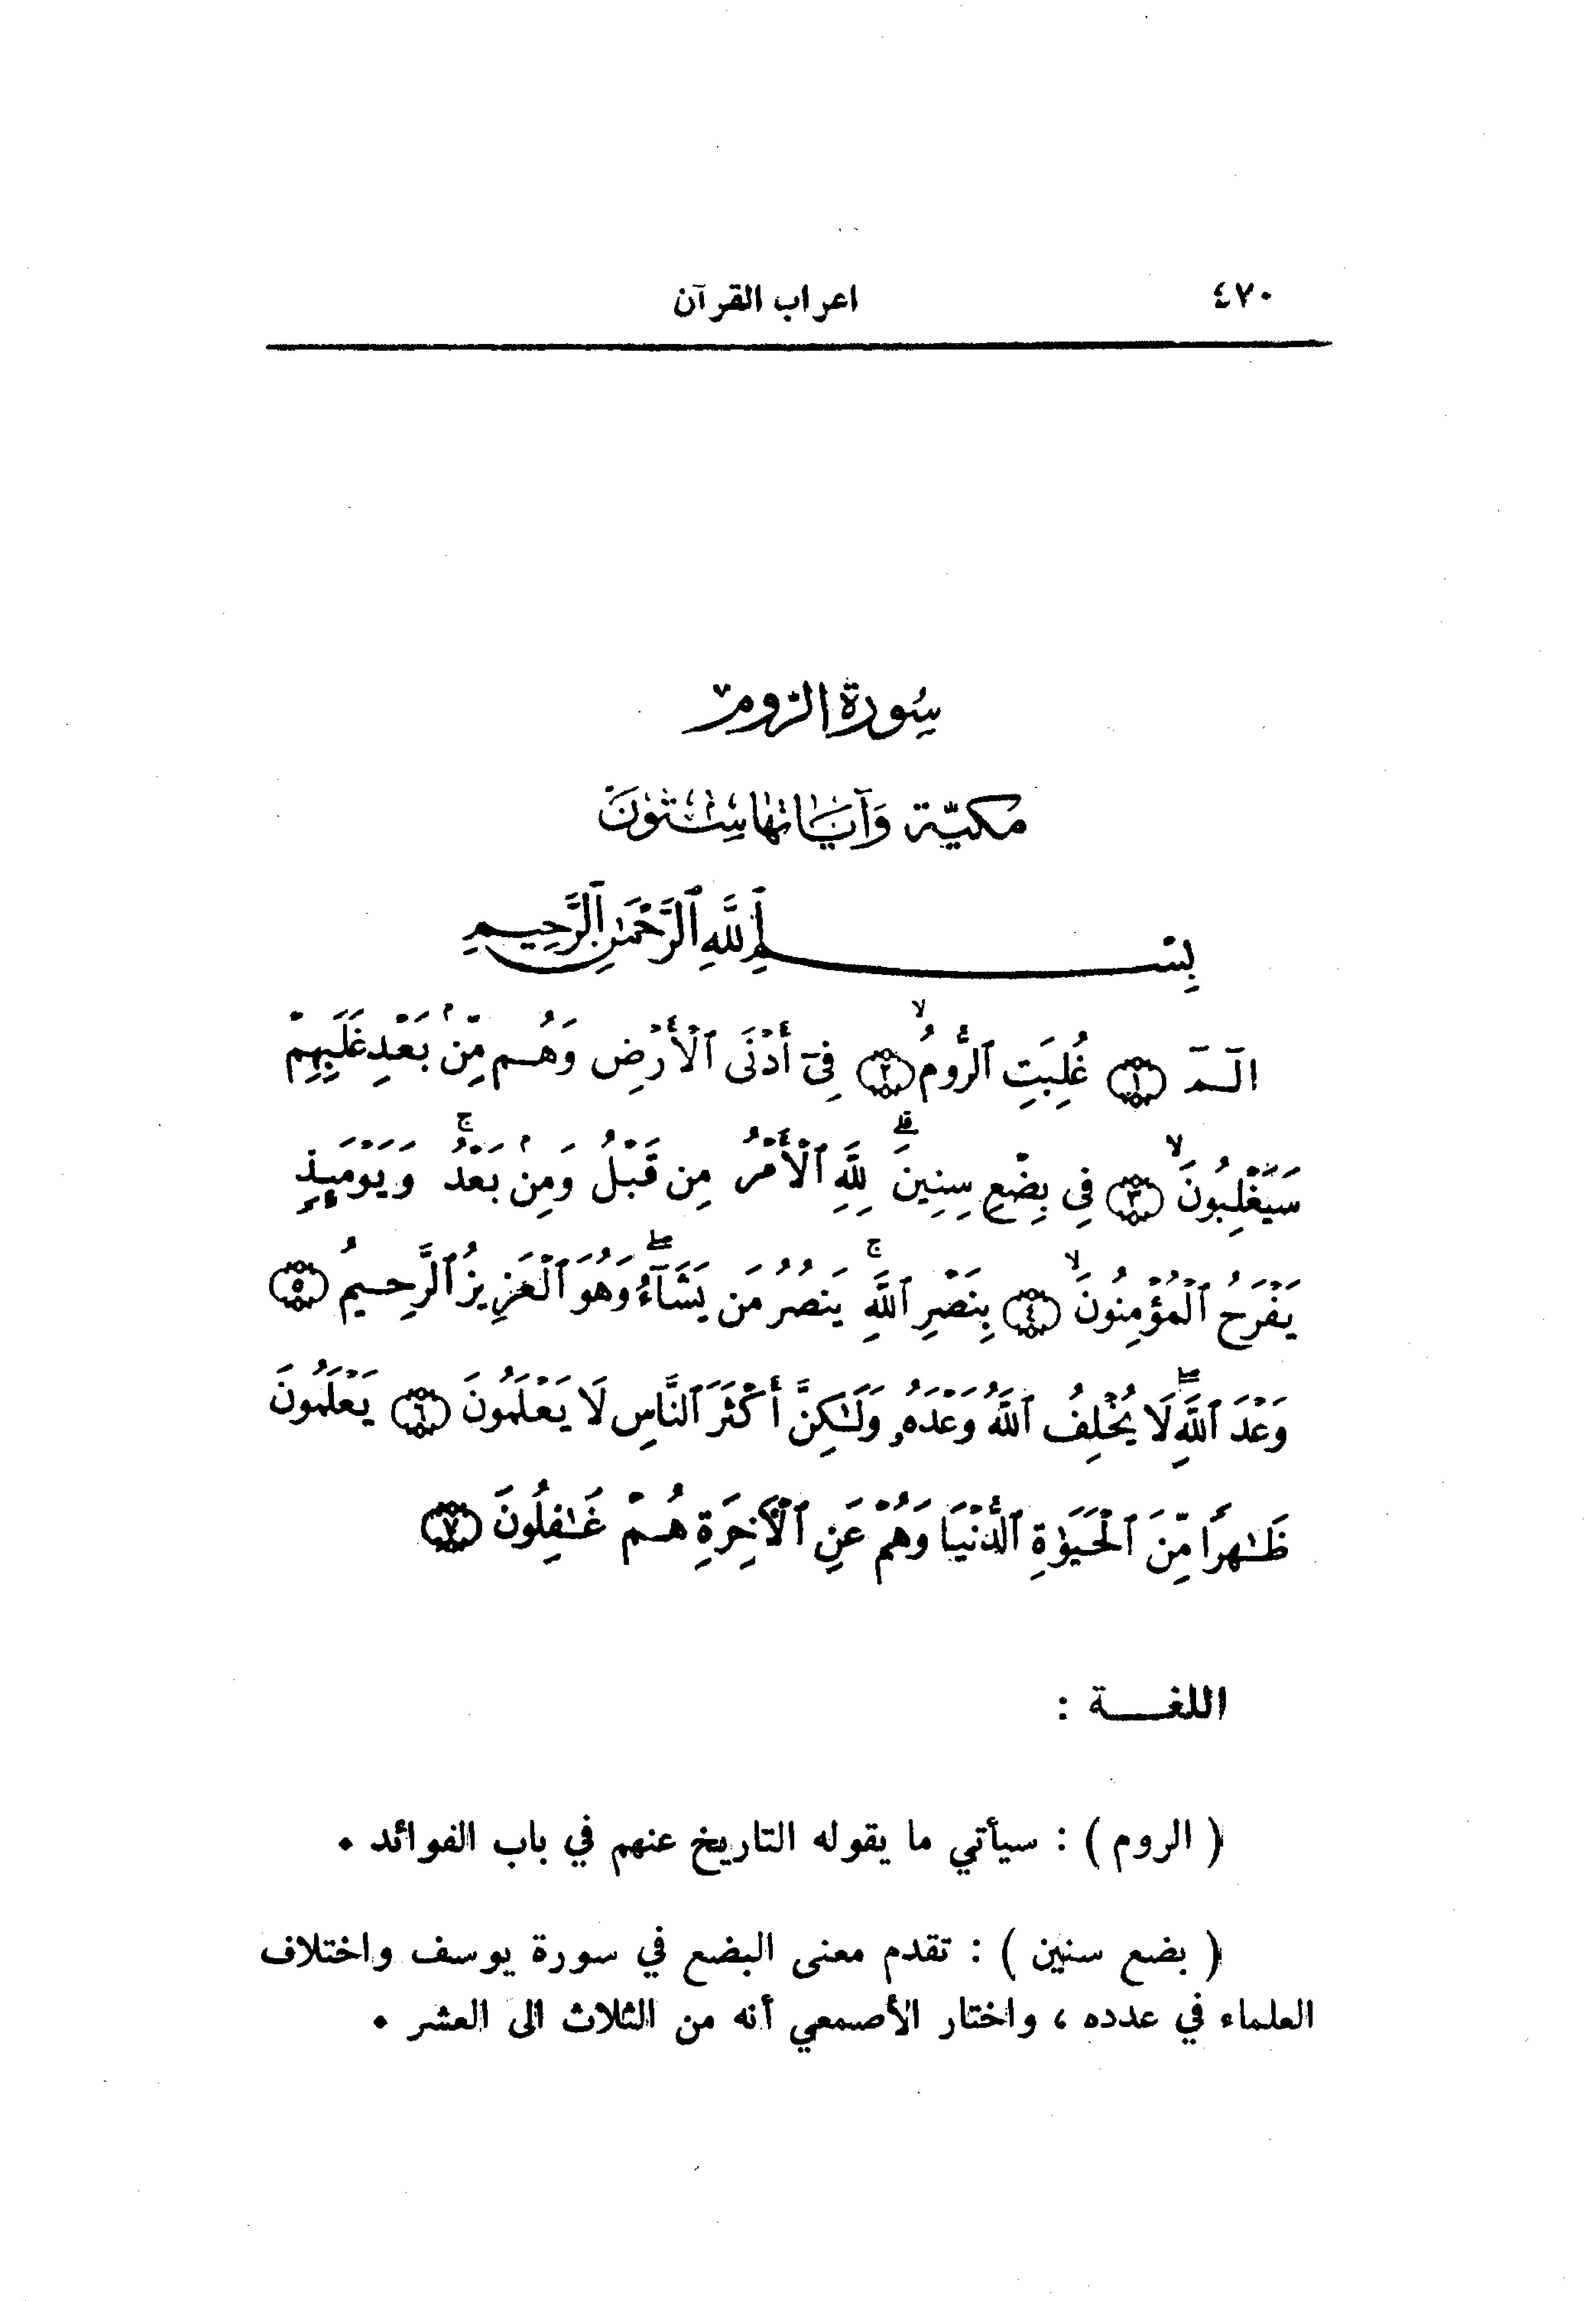 ٤٧٠
اعراب القرآن
سُورة الرّوم
مكيّة وَآيَاتها سِتّونَ
بِسْمِ ٱللَّهِ ٱلرَّحْمَٰنِ ٱلرَّحِيمِ
الٓـمٓ ﴿١﴾ غُلِبَتِ ٱلرُّومُ ۙ ﴿٢﴾ فِىٓ أَدْنَى ٱلْأَرْضِ وَهُـم مِّنۢ بَعْدِ غَلَبِهِمْ
سَيَغْلِبُونَ ۙ ﴿٣﴾ فِي بِضْعِ سِنِينَ ۗ لِلَّهِ ٱلْأَمْرُ مِن قَبْلُ وَمِنۢ بَعْدُ ۚ وَيَوْمَئِذٍ
يَفْرَحُ ٱلْمُؤْمِنُونَ ۙ ﴿٤﴾ بِنَصْرِ ٱللَّهِ ۚ يَنصُرُ مَن يَشَآءُ ۖ وَهُوَ ٱلْعَزِيزُ ٱلرَّحِيمُ ﴿٥﴾
وَعْدَ ٱللَّهِ ۖ لَا يُخْلِفُ ٱللَّهُ وَعْدَهُۥ وَلَٰكِنَّ أَكْثَرَ ٱلنَّاسِ لَا يَعْلَمُونَ ﴿٦﴾ يَعْلَمُونَ
ظَٰهِرًا مِّنَ ٱلْحَيَوٰةِ ٱلدُّنْيَا وَهُمْ عَنِ ٱلْأٓخِرَةِ هُـمْ غَٰفِلُونَ ﴿٧﴾
اللغـــة :
( الروم ) : سيأتي ما يقوله التاريخ عنهم في باب الفوائد .
( بضع سنين ) : تقدم معنى البضع في سورة يوسف واختلاف
العلماء في عدده ، واختار الأصمعي أنه من الثلاث الى العشر .